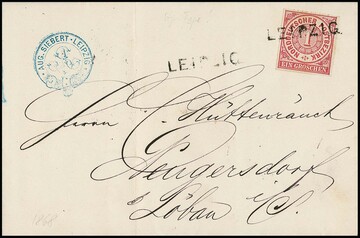 AUG. SIEBERT · LEIPZIG
LEIPZIG
LEIPZIG
NORDDEUTSCHER POSTBEZIRK
1
EIN GROSCHEN
Herrn C. Hüttenräuch
Oengersdorf
b/ Löbau i/S.